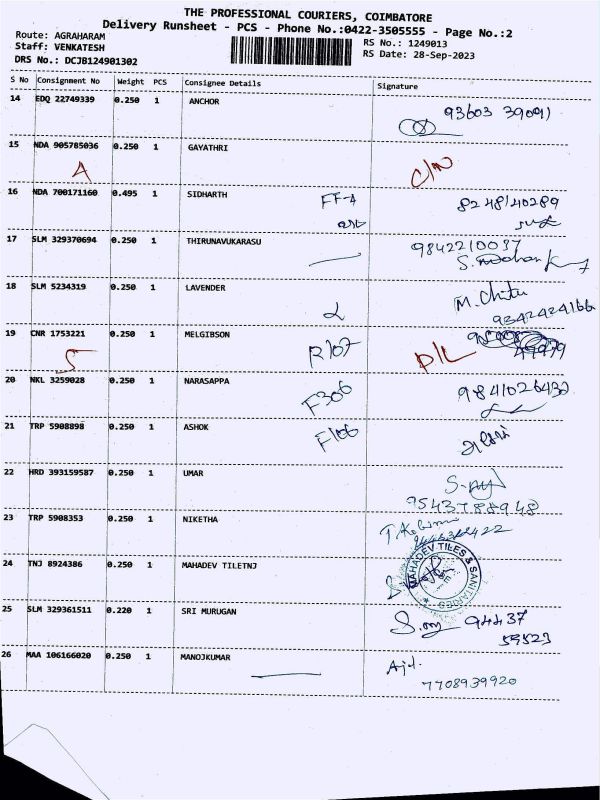 THE PROFESSIONAL COURIERS, COIMBATORE
Delivery Runsheet - PCS - Phone No.:0422-3505555 - Page No.:2
Route: AGRAHARAM
Staff: VENKATESH
DRS No.: DCJB124901302
RS No.: 1249013
RS Date: 28-Sep-2023
S No Consignment No Weight PCS Consignee Details Signature
14 EDQ 22749339 0.250 1 ANCHOR 93603 39091
15 NDA 905785036 0.250 1 GAYATHRI
A
16 NDA 700171160 0.495 1 SIDHARTH FF-4 8248140289
17 SLM 329370694 0.250 1 THIRUNAVUKARASU 9842210037
18 SLM 5234319 0.250 1 LAVENDER M. Chitu
9342424166
19 CNR 1753221 0.250 1 MELGIBSON R107 D/L
S
20 NKL 3259028 0.250 1 NARASAPPA F306 9841026432
21 TRP 5908898 0.250 1 ASHOK F106
22 HRD 393159587 0.250 1 UMAR
9543788948
23 TRP 5908353 0.250 1 NIKETHA
24 TNJ 8924386 0.250 1 MAHADEV TILETNJ MAHADEV TILES &
25 SLM 329361511 0.220 1 SRI MURUGAN 94437
59523
26 MAA 106166020 0.250 1 MANOJKUMAR Ajd.
7708939920